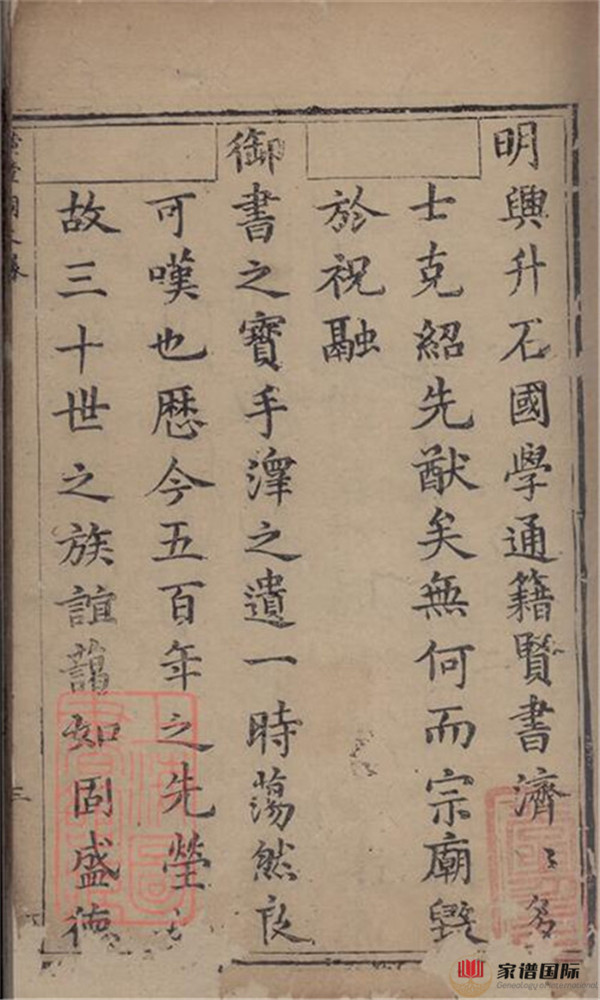 明興升不國學通籍賢書濟〻多
士克紹先猷矣無何而宗廟毀
於祝融
御書之寶手澤之遺一時蕩然良
可嘆也歷今五百年之先塋
故三十世之族誼藹如固盛德
三
家谱国际
Genealogy of International